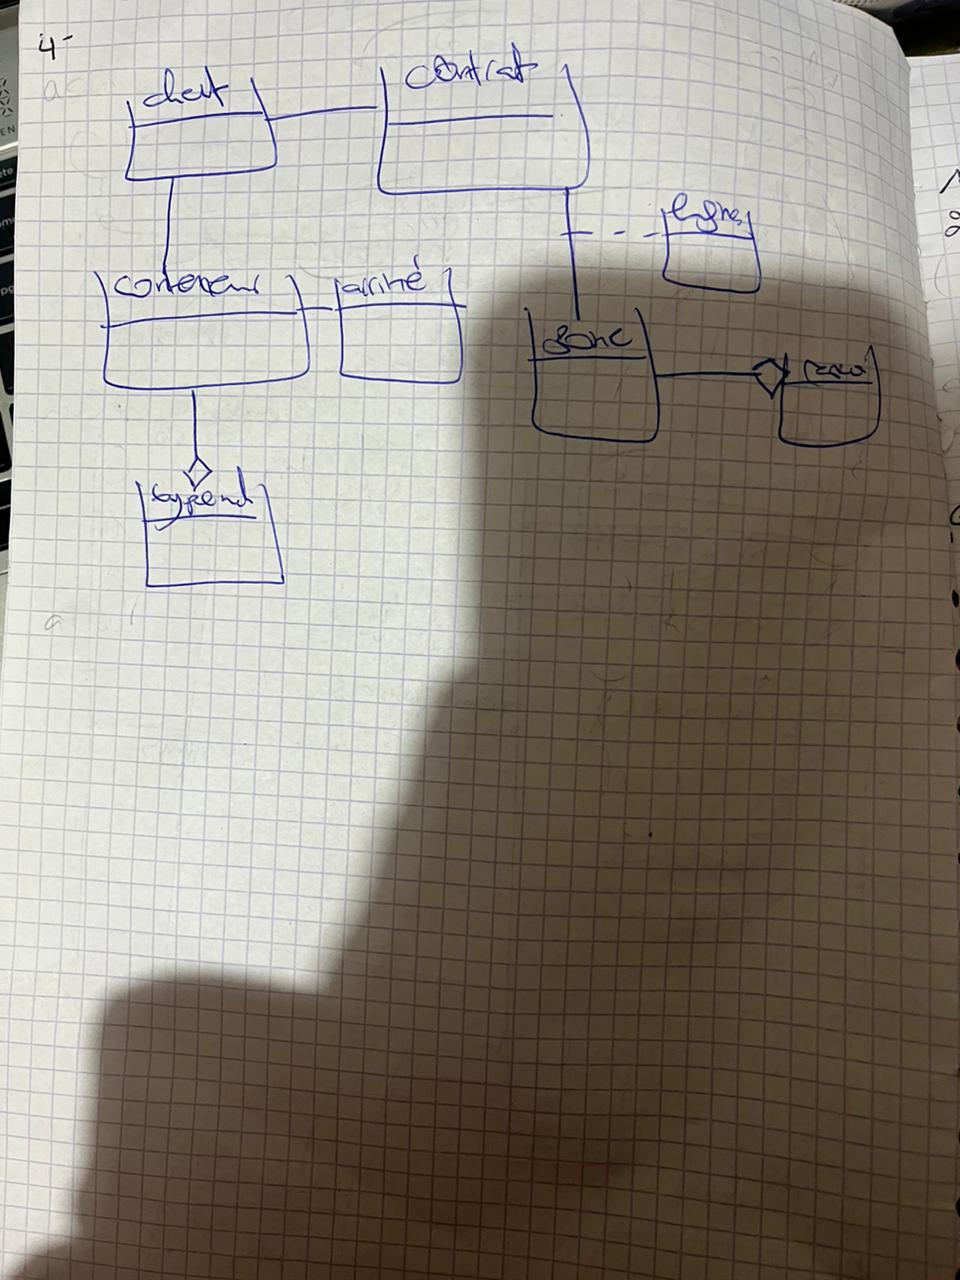 4-
client
contrat
lignes
conteneur
arrivé
zone